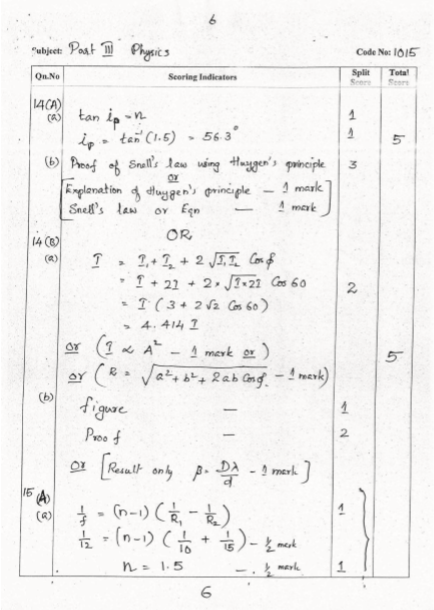 6
Subject: Part III Physics Code No: 1015
Qn.No Scoring Indicators Split Score Total Score
14(A)
(a) tan ip = n 1
ip = tan⁻¹(1.5) = 56.3° 1 5
(b) Proof of Snell's law using Huygen's principle 3
or
[Explanation of Huygen's principle – 1 mark
Snell's law or Eqn — 1 mark]
OR
14(B)
(a) I = I₁ + I₂ + 2√I₁I₂ Cos ϕ
= I + 2I + 2 × √I×2I Cos 60 2
= I (3 + 2√2 Cos 60)
= 4.414 I
or (I ∝ A² – 1 mark or) 5
or (R = √a² + b² + 2ab Cosϕ – 1 mark)
(b) figure — 1
Proof — 2
or [Result only β = Dλ/d – 1 mark]
15 (A)
(a) 1/f = (n-1) (1/R₁ – 1/R₂) 1
1/12 = (n-1) (1/10 + 1/15) – ½ mark
n = 1.5 – ½ mark 1
6